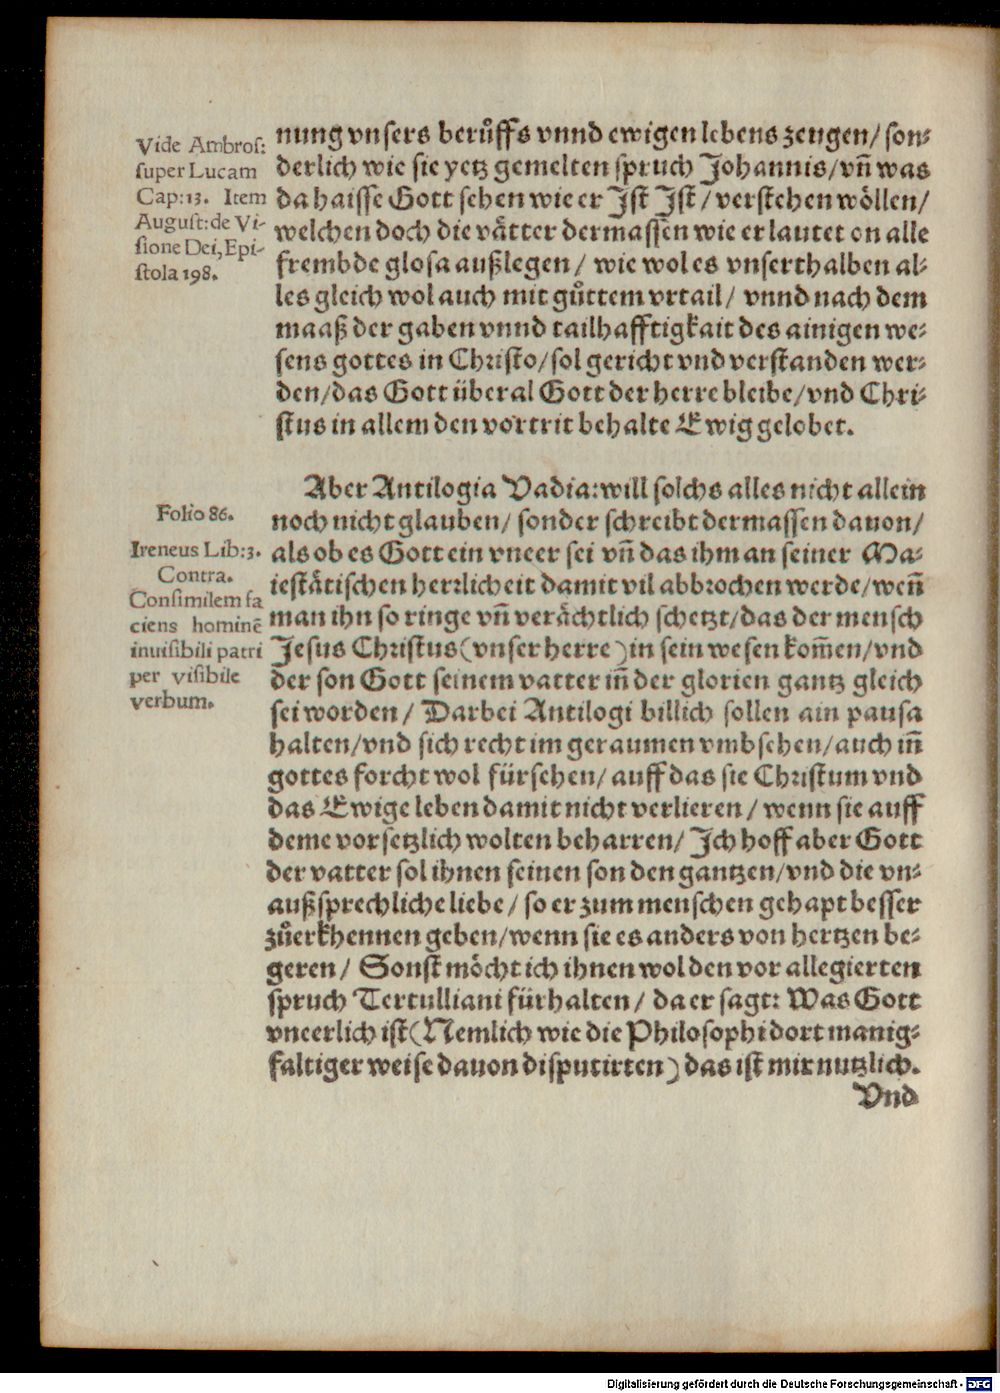 Vide Ambros:
super Lucam
Cap: 13. Item
August: de Vi-
sione Dei, Epi-
stola 198.
nung vnsers berůffs vnnd ewigen lebens zeugen / son-
derlich wie sie yetz gemelten spruch Johannis / vn̄ was
da haisse Gott sehen wie er Jst Jst / verstehen wöllen /
welchen doch die vätter dermassen wie er lautet on alle
frembde glosa außlegen / wie wol es vnserthalben al-
les gleich wol auch mit gůttem vrtail / vnnd nach dem
maaß der gaben vnnd tailhafftigkait des ainigen we-
sens gottes in Christo / sol gericht vnd verstanden wer-
den / das Gott überal Gott der herre bleibe / vnd Chri-
stus in allem den vortrit behalte Ewig gelobet.
Folio 86.
Ireneus Lib: 3.
Contra.
Consimilem fa
ciens hominē
inuisibili patri
per visibile
verbum.
Aber Antilogia Vadia: will solchs alles nicht allein
noch nicht glauben / sonder schreibt dermassen dauon /
als ob es Gott ein vneer sei vn̄ das ihm an seiner Ma-
iestätischen herrlicheit damit vil abbrochen werde / weñ
man ihn so ringe vn̄ verächtlich schetzt / das der mensch
Jesus Christus (vnser herre) in sein wesen kom̄en / vnd
der son Gott seinem vatter in̄ der glorien gantz gleich
sei worden / Darbei Antilogi billich sollen ain pausa
halten / vnd sich recht im geraumen vmbsehen / auch in̄
gottes forcht wol fürsehen / auff das sie Christum vnd
das Ewige leben damit nicht verlieren / wenn sie auff
deme vorsetzlich wolten beharren / Jch hoff aber Gott
der vatter sol ihnen seinen son den gantzen / vnd die vn-
außsprechliche liebe / so er zum menschen gehapt besser
zůerkhennen geben / wenn sie es anders von hertzen be-
geren / Sonst möcht ich ihnen wol den vor allegierten
spruch Tertulliani fürhalten / da er sagt: Was Gott
vneerlich ist (Nemlich wie die Philosophi dort manig-
faltiger weise dauon disputirten) das ist mir nutzlich.
Vnd
Digitalisierung gefördert durch die Deutsche Forschungsgemeinschaft - DFG